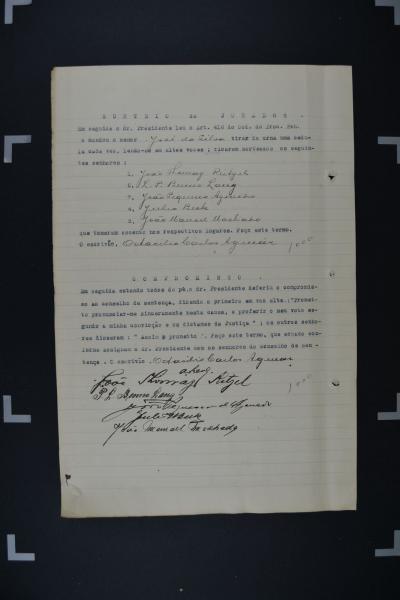 SORTEIO de JURADOS .
Em seguida o dr. Presidente leu o Art. 418 do Cod. do Proc. Pen.
e mandou o menor José da Silva tirar da urna uma cedu-
la cada vez, lendo-se em altas vozes ; ficaram sorteados os seguin-
tes senhores :
1. João Thomaz Kutzel
2. P. L. Benno Lang
3. João Pequeno Azevedo
4. Julio Beck
5. João Manoel Machado
que tomaram assento nos respectivos logares. Faço este termo.
O escrivão, Octacilio Carlos Aguiar
COMPROMISSO .
Em seguida estando todos de pé,o dr. Presidente deferiu o compromis-
so ao conselho de sentença, dizendo o primeiro em voz alta :"Prometto
pronunciar-me sinceramente nesta causa, e proferir o meu voto se-
gundo a minha convicção e os dictames da Justiça" ; os outros senho-
res disseram : " Assim o prometto ". Faço este termo, que estando con-
forme assignam o dr. Presidente com os senhores do conselho de sen-
tença . O escrivão Octacilio Carlos Aguiar
João Thomaz Kutzel
P L Benno Lang
João Pequeno de Azevedo
Julio Beck
João Manoel Machado